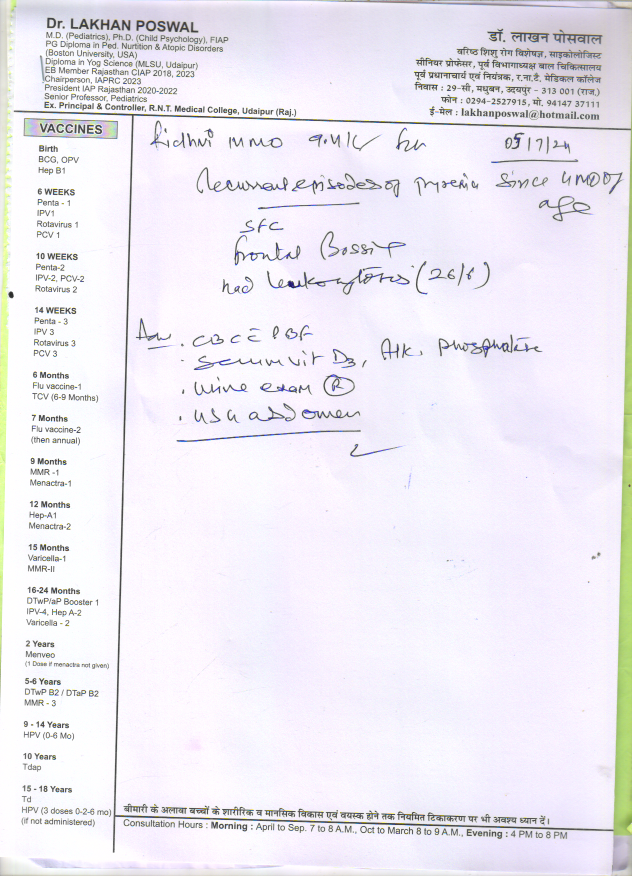 Dr. LAKHAN POSWAL
M.D. (Pediatrics), Ph.D. (Child Psychology), FIAP
PG Diploma in Ped. Nurtition & Atopic Disorders
(Boston University, USA)
Diploma in Yog Science (MLSU, Udaipur)
EB Member Rajasthan CIAP 2018, 2023
Chairperson, IAPRC 2023
President IAP Rajasthan 2020-2022
Senior Professor, Pediatrics
Ex. Principal & Controller, R.N.T. Medical College, Udaipur (Raj.)
डॉ. लाखन पोसवाल
वरिष्ठ शिशु रोग विशेषज्ञ, साइकोलोजिस्ट
सीनियर प्रोफेसर, पूर्व विभागाध्यक्ष बाल चिकित्सालय
पूर्व प्रधानाचार्य एवं नियंत्रक, र.ना.टै. मेडिकल कॉलेज
निवास : 29-सी, मधुबन, उदयपुर - 313 001 (राज.)
फोन : 0294-2527915, मो. 94147 37111
ई-मेल : lakhanposwal@hotmail.com
VACCINES
Birth
BCG, OPV
Hep B1
6 WEEKS
Penta - 1
IPV1
Rotavirus 1
PCV 1
10 WEEKS
Penta-2
IPV-2, PCV-2
Rotavirus 2
14 WEEKS
Penta - 3
IPV 3
Rotavirus 3
PCV 3
6 Months
Flu vaccine-1
TCV (6-9 Months)
7 Months
Flu vaccine-2
(then annual)
9 Months
MMR -1
Menactra-1
12 Months
Hep-A1
Menactra-2
15 Months
Varicella-1
MMR-II
16-24 Months
DTwP/aP Booster 1
IPV-4, Hep A-2
Varicella - 2
2 Years
Menveo
(1 Dose if menactra not given)
5-6 Years
DTwP B2 / DTaP B2
MMR - 3
9 - 14 Years
HPV (0-6 Mo)
10 Years
Tdap
15 - 18 Years
Td
HPV (3 doses 0-2-6 mo)
(if not administered)
Ridhni 11MO
05/7/24
Recurrent episodes of pyrexia since 4MO of
age
SFC
frontal Bossing
had leukocytosis (26/6)
Adv. CBC Ē PBF
. Serum Vit D3, Alk. Phosphatase
. Urine exam (R)
. USG abdomen
बीमारी के अलावा बच्चों के शारीरिक व मानसिक विकास एवं वयस्क होने तक नियमित टिकाकरण पर भी अवश्य ध्यान दें।
Consultation Hours : Morning : April to Sep. 7 to 8 A.M., Oct to March 8 to 9 A.M., Evening : 4 PM to 8 PM